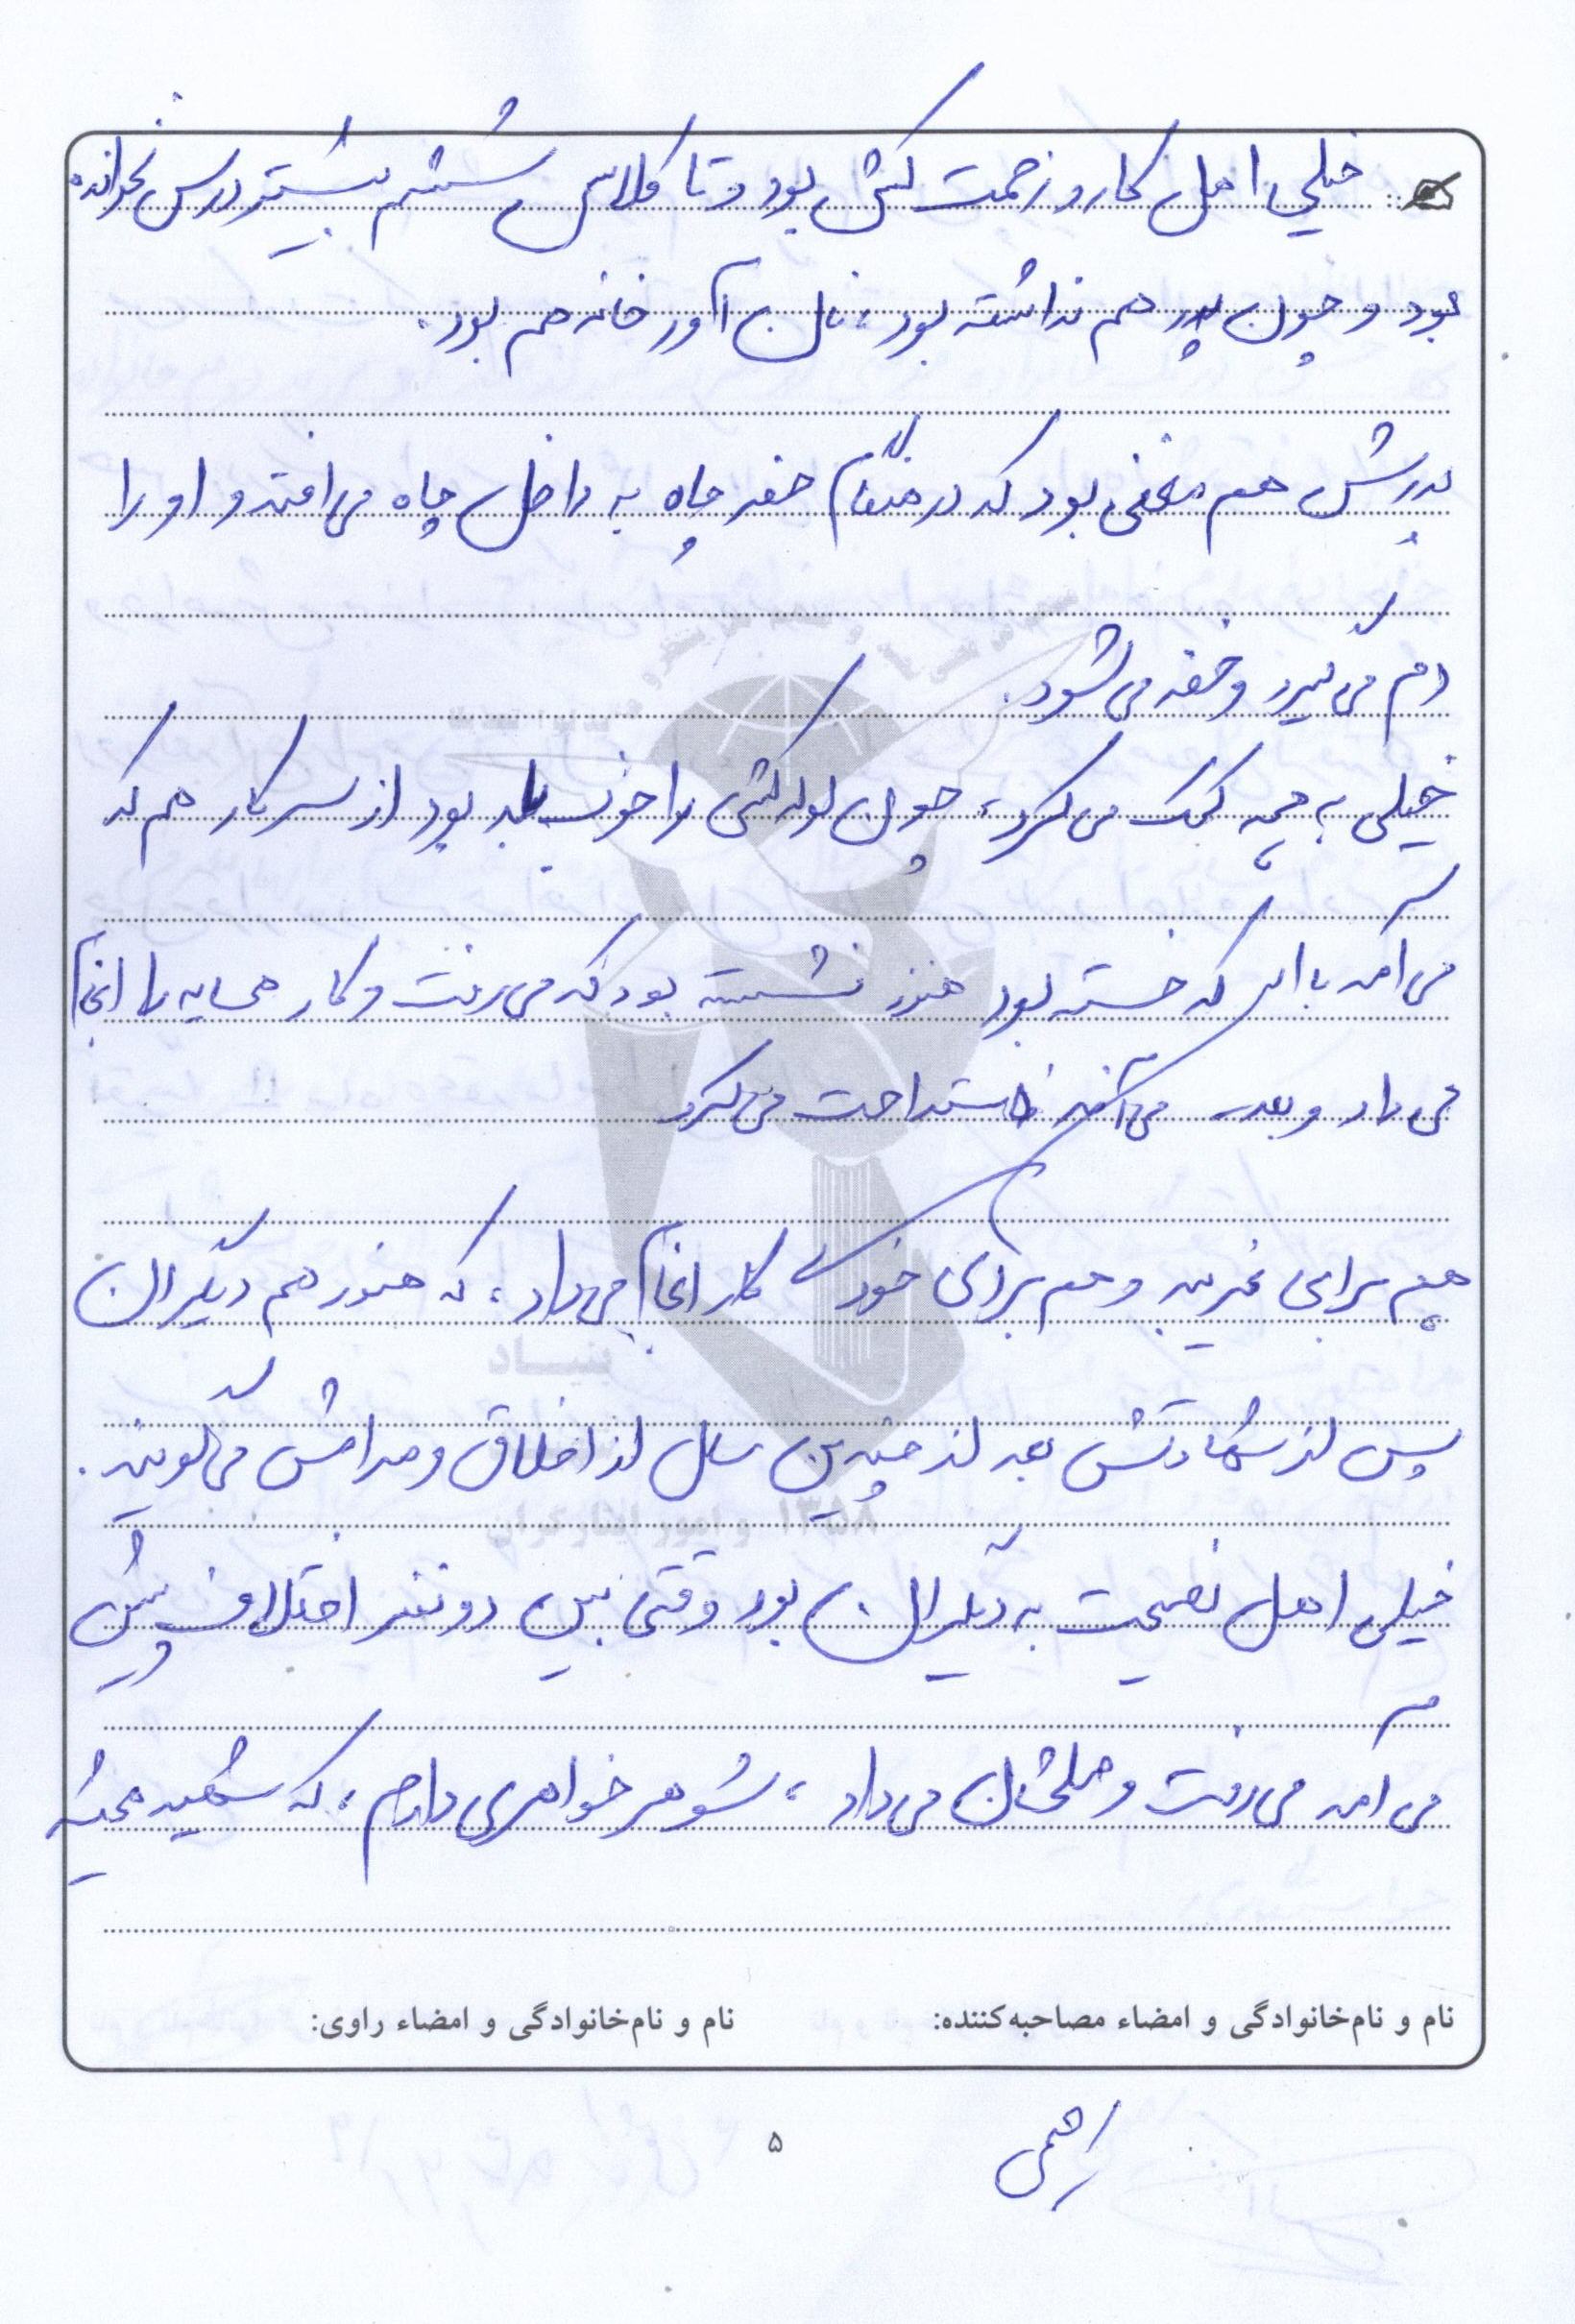 خیلی اهل کار و زحمت کش بود و تا کلاس ششم بیشتر درس نخوانده
بود و چون پدر هم نداشته بود، نان آور خانه هم بود.
پدرش هم مقنی بود که در هنگام حفر چاه به داخل چاه می‌افتد و او را
دم می‌گیرد و خفه می‌شود.
خیلی به همه کمک می‌کرد، چون لوله کشی را خوب بلد بود از سر کار هم که
می‌آمد با این که خسته بود هنوز ننشسته بود که می‌رفت و کار همسایه را انجام
می‌داد و بعد می‌آمد استراحت می‌کرد
هم برای غریبه و هم برای خودی کار انجام می‌داد، که هنوز هم دیگران
پس از شهادتش بعد از چندین سال از اخلاق و مرامش می‌گویند.
خیلی اهل نصیحت به دیگران بود وقتی بین دو نفر اختلاف پیش
می‌آمد می‌رفت و صلحشان می‌داد، شوهر خواهری دارم، که شهید همیشه
نام و نام‌خانوادگی و امضاء مصاحبه‌کننده: نام و نام‌خانوادگی و امضاء راوی:
۵
بنیاد
۱۳۵۸ و امور ایثارگران